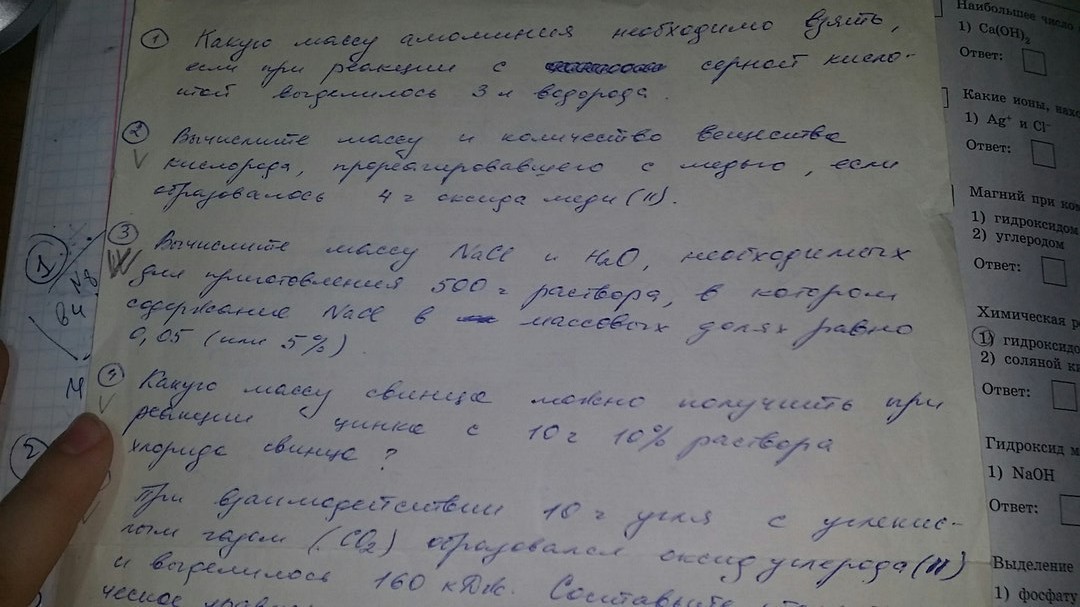 ① Какую массу алюминия необходимо взять,
если при реакции с серной кисло-
той выделилось 3 л водорода.
② Вычислите массу и количество вещества
кислорода, прореагировавшего с медью, если
образовалось 4 г оксида меди (II).
③ Вычислите массу NaCl и H2O, необходимых
для приготовления 500 г раствора, в котором
содержание NaCl в массовых долях равно
0,05 (или 5%)
④ Какую массу свинца можно получить при
реакции цинка с 10 г 10% раствора
хлорида свинца?
При взаимодействии 10 г угля с углекис-
лым газом (CO2) образовался оксид углерода (II)
и выделилось 160 кДж. Составьте
ческое
Наибольшее число
1) Ca(OH)₂
Ответ:
Какие ионы, нахо
1) Ag⁺ и Cl⁻
Ответ:
Магний при ком
1) гидроксидом
2) углеродом
Ответ:
Химическая р
1) гидроксидо
2) соляной ки
Ответ:
Гидроксид м
1) NaOH
Ответ:
Выделение
1) фосфату